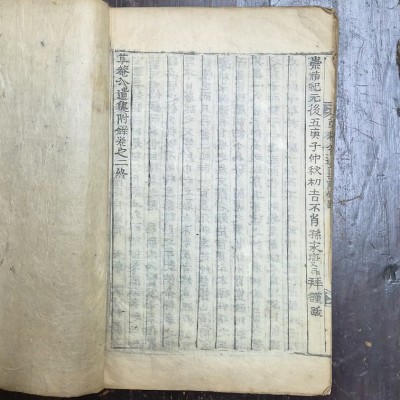 崇禎紀元後五庚子仲秋初吉不肖孫拜謹跋
菴公遺集附錄卷之二終